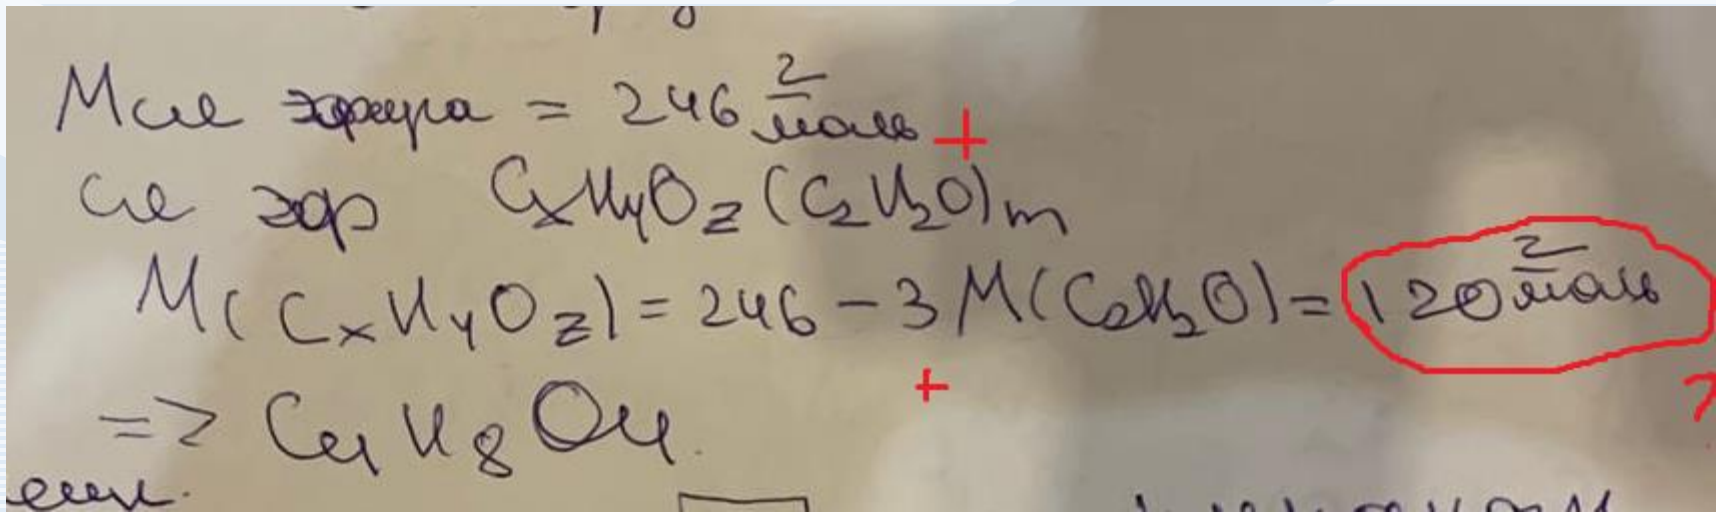 Mсл эфира = 246 г/моль +
сл эфр CxHyOz(C2H2O)m
M(CxHyOz) = 246 - 3M(C2H2O) = 120 г/моль
+ ?
=> C4H8O4.